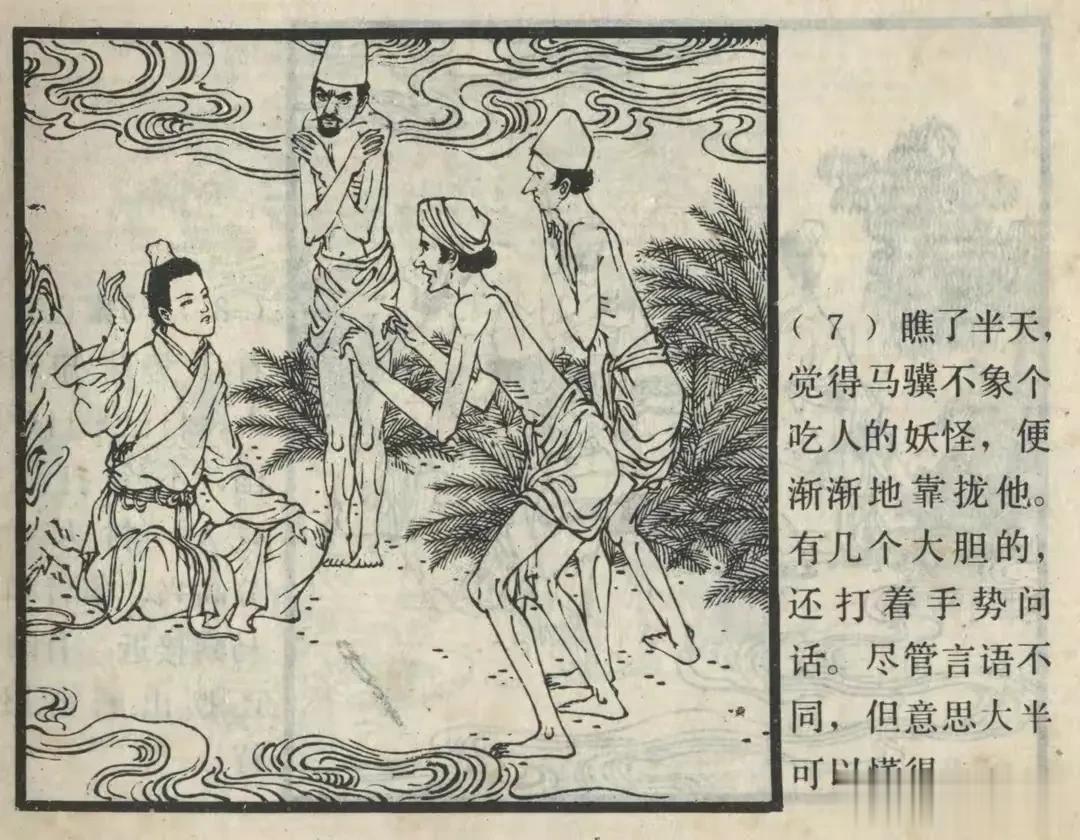 （7）瞧了半天，
觉得马骥不象个
吃人的妖怪，便
渐渐地靠拢他。
有几个大胆的，
还打着手势问
话。尽管言语不
同，但意思大半
可以懂得